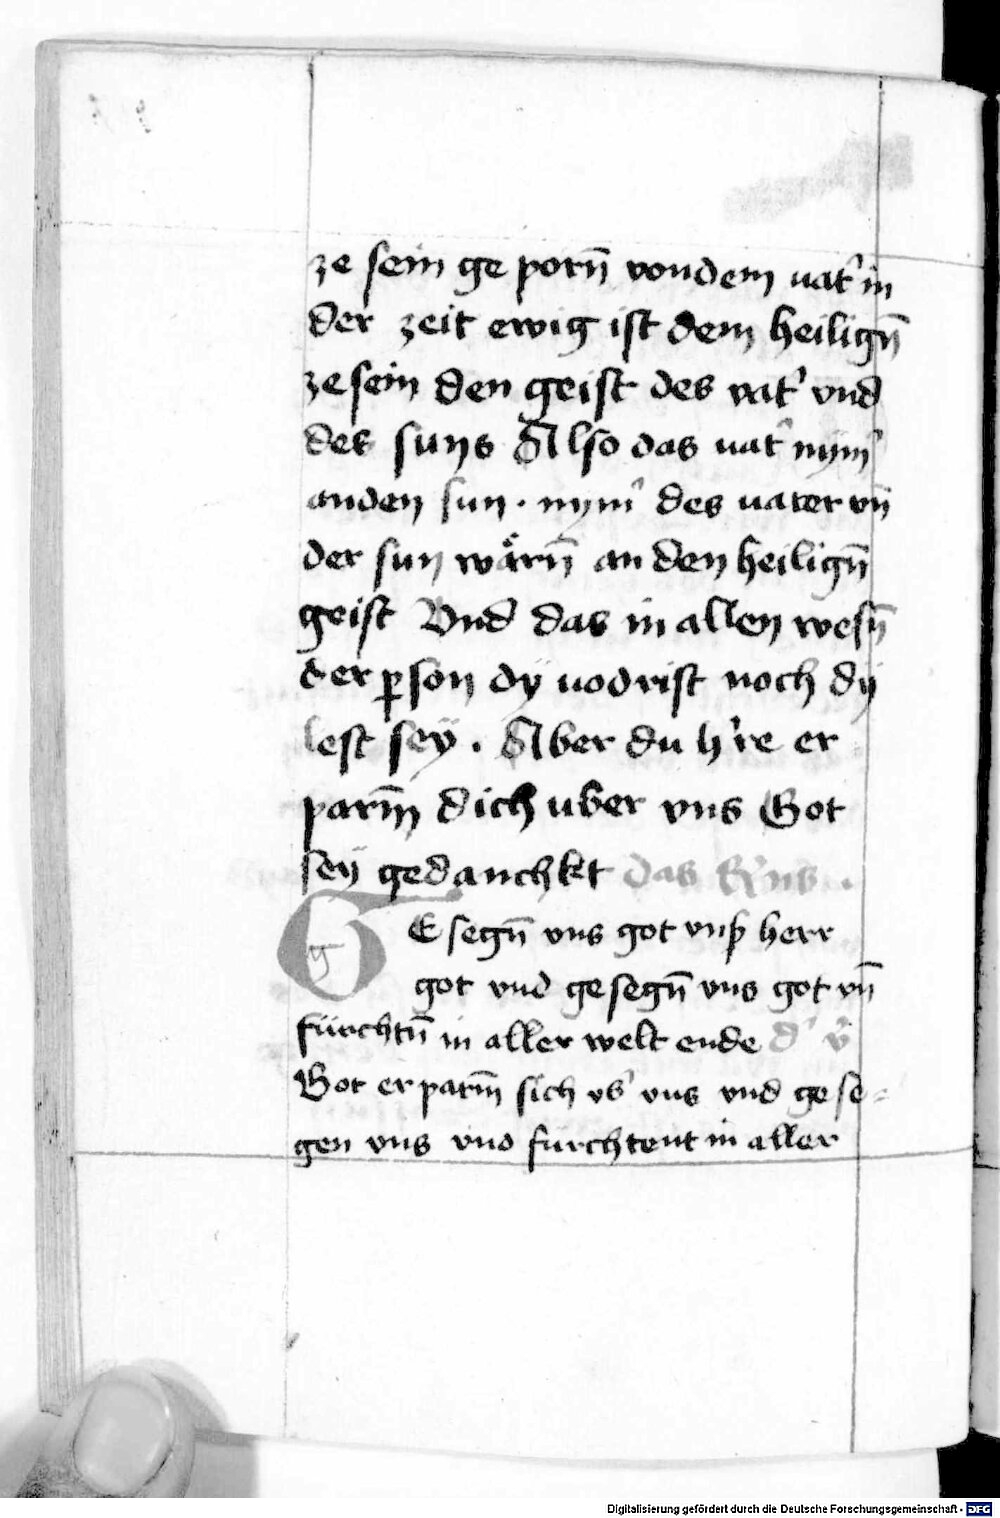 ze sein ge porn̄ von dem uat᾽ in
der zeit ewig ist dem heilign̄
ze sein den geist des vat᾽ vnd
des suns Also das uat᾽ nym᾽
an den sun · nym᾽ des uater vn̄
der sun wårn̄ an den heilign̄
geist Vnd das in allen wesn̄
der ꝑson dy uodrist noch dy
lest sey . Aber du h᾽re er
parm̄ dich uber vns Got
sey gedanchkt das R᾽ns .
GE segn̄ vns got vnß herr
got vnd ge segn̄ vns got vn̄
fürchtn̄ in aller welt ende d᾽ v᾽
Got er parm̄ sich vb᾽ vns vnd ge se=
gen vns vnd fürchtent in aller
Digitalisierung gefördert durch die Deutsche Forschungsgemeinschaft - DFG